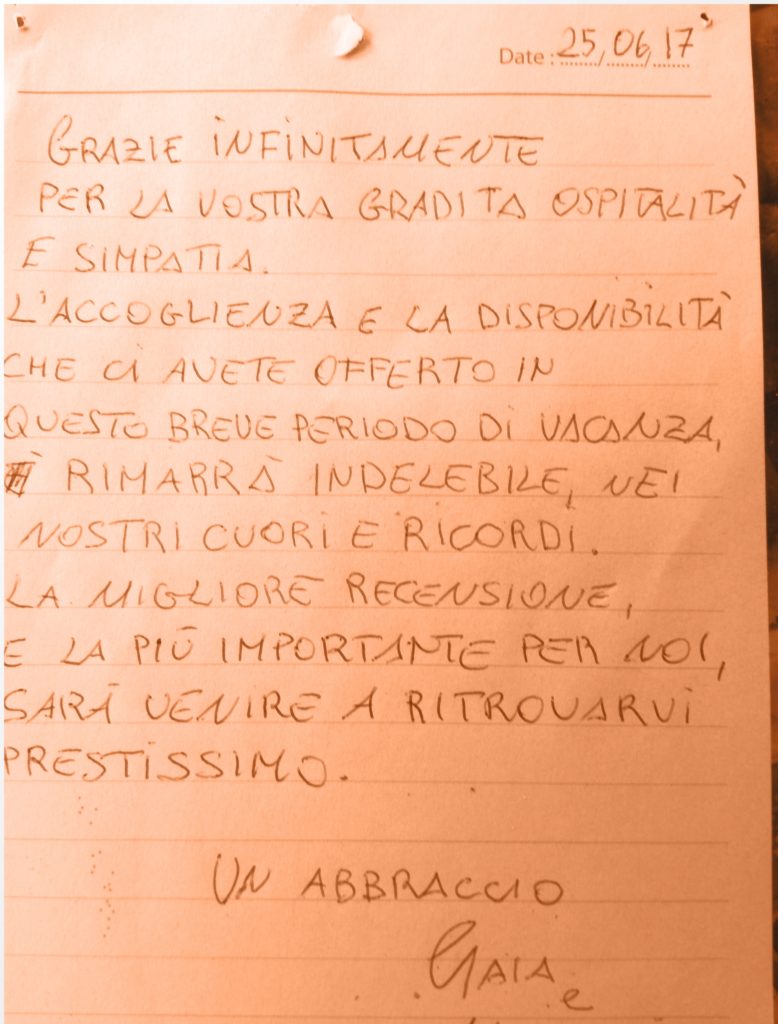 Date: 25/06/17
GRAZIE INFINITAMENTE
PER LA VOSTRA GRADITA OSPITALITÀ
E SIMPATIA.
L'ACCOGLIENZA E LA DISPONIBILITÀ
CHE CI AVETE OFFERTO IN
QUESTO BREVE PERIODO DI VACANZA,
RIMARRÀ INDELEBILE, NEI
NOSTRI CUORI E RICORDI.
LA MIGLIORE RECENSIONE,
E LA PIÙ IMPORTANTE PER NOI,
SARÀ VENIRE A RITROVARVI
PRESTISSIMO.
UN ABBRACCIO
GAIA
e